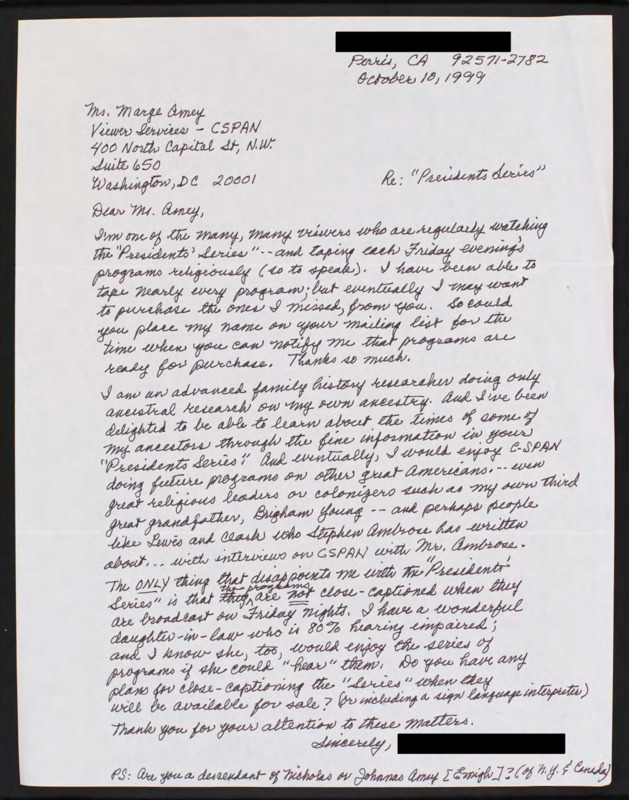 Perris, CA 92571-2782
October 10, 1999
Ms. Marge Amey
Viewer Services - CSPAN
400 North Capital St, N.W.
Suite 650
Washington, DC 20001
Re: "Presidents Series"
Dear Ms. Amey,
I'm one of the many, many viewers who are regularly watching
the "Presidents' Series" -- and taping each Friday evening's
programs religiously (so to speak). I have been able to
tape nearly every program; but eventually I may want
to purchase the ones I missed, from you. So could
you place my name on your mailing list for the
time when you can notify me that programs are
ready for purchase. Thanks so much.
I am an advanced family history researcher doing only
ancestral research on my own ancestry. And I've been
delighted to be able to learn about the times of some of
my ancestors through the fine information in your
"Presidents Series." And eventually, I would enjoy C-SPAN
doing future programs on other great Americans -- even
great religious leaders or colonizers such as my own third
great grandfather, Brigham Young -- and perhaps people
like Lewis and Clark who Stephen Ambrose has written
about... with interviews on CSPAN with Mr. Ambrose.
The ONLY thing that disappoints me with the "Presidents'
Series" is that they the programs are not close-captioned when they
are broadcast on Friday nights. I have a wonderful
daughter-in-law who is 80% hearing impaired;
and I know she, too, would enjoy the series of
programs if she could "hear" them. Do you have any
plans for close-captioning the "Series" when they
will be available for sale? (or including a sign language interpreter)
Thank you for your attention to these matters.
Sincerely,
PS: Are you a descendant of Nicholas or Johnnas Amey [Emigh]? (of N.Y. & Canada)